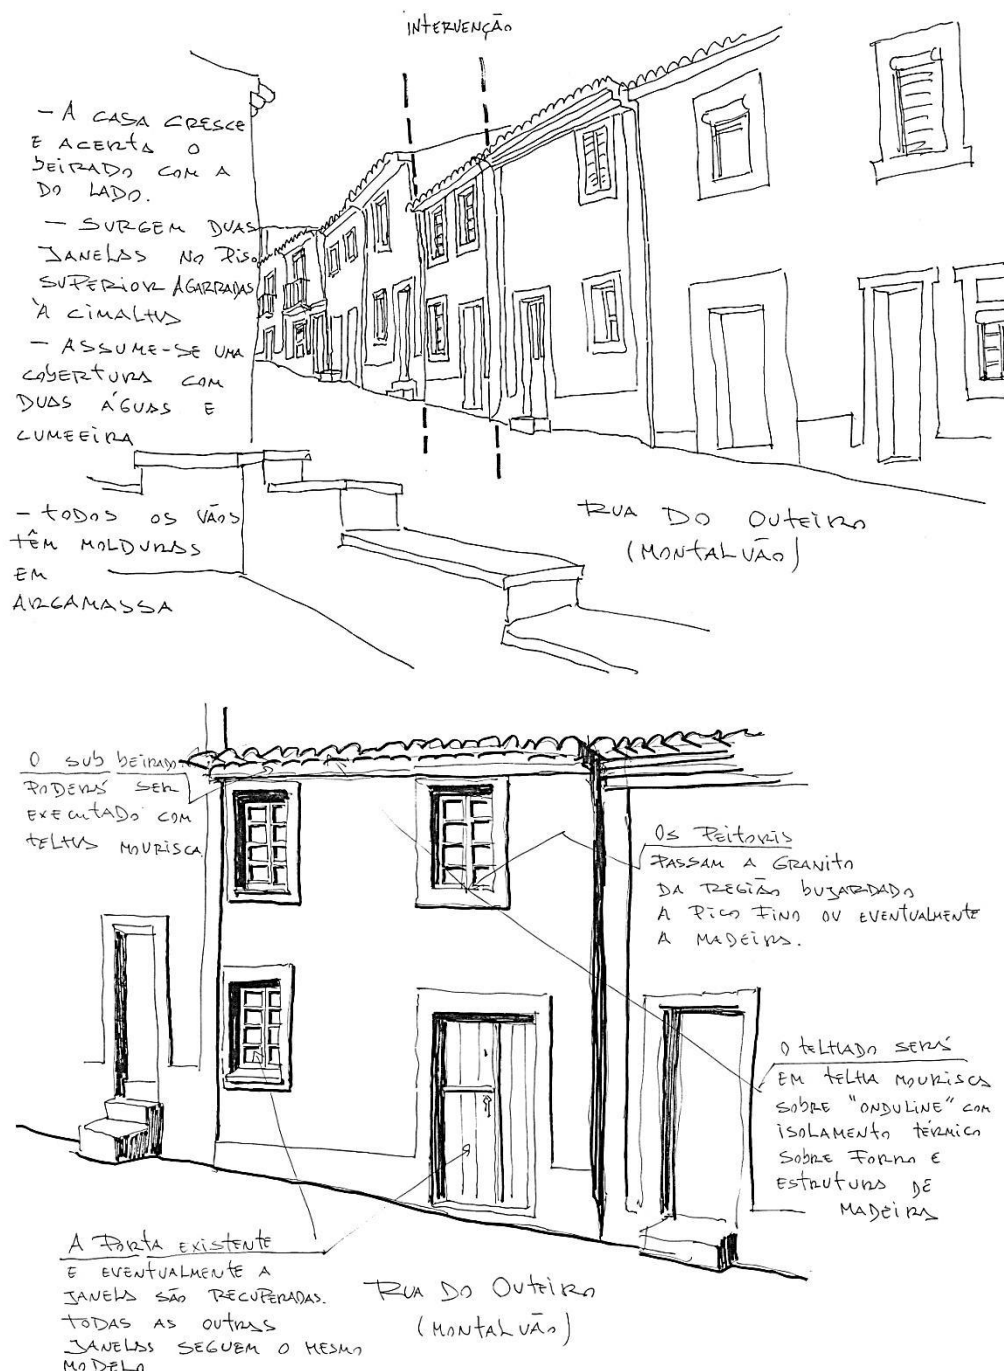 INTERVENÇÃO
- A CASA CRESCE
E ACERTA O
BEIRADO COM A
DO LADO.
- SURGEM DUAS
JANELAS NO PISO
SUPERIOR AGARRADAS
À CIMALHA
- ASSUME-SE UMA
COBERTURA COM
DUAS ÁGUAS E
CUMEEIRA
- TODOS OS VÃOS
TÊM MOLDURAS
EM
ARGAMASSA
RUA DO OUTEIRO
(MONTALVÃO)
O SUB BEIRADO
PODERÁ SER
EXECUTADO COM
TELHA MOURISCA
OS PEITORIS
PASSAM A GRANITO
DA REGIÃO BUJARDADO
A PICO FINO OU EVENTUALMENTE
A MADEIRA.
O TELHADO SERÁ
EM TELHA MOURISCA
SOBRE "ONDULINE" COM
ISOLAMENTO TÉRMICO
SOBRE FORRO E
ESTRUTURA DE
MADEIRA
A PORTA EXISTENTE
E EVENTUALMENTE A
JANELA SÃO RECUPERADAS.
TODAS AS OUTRAS
JANELAS SEGUEM O MESMO
MODELO
RUA DO OUTEIRO
(MONTALVÃO)